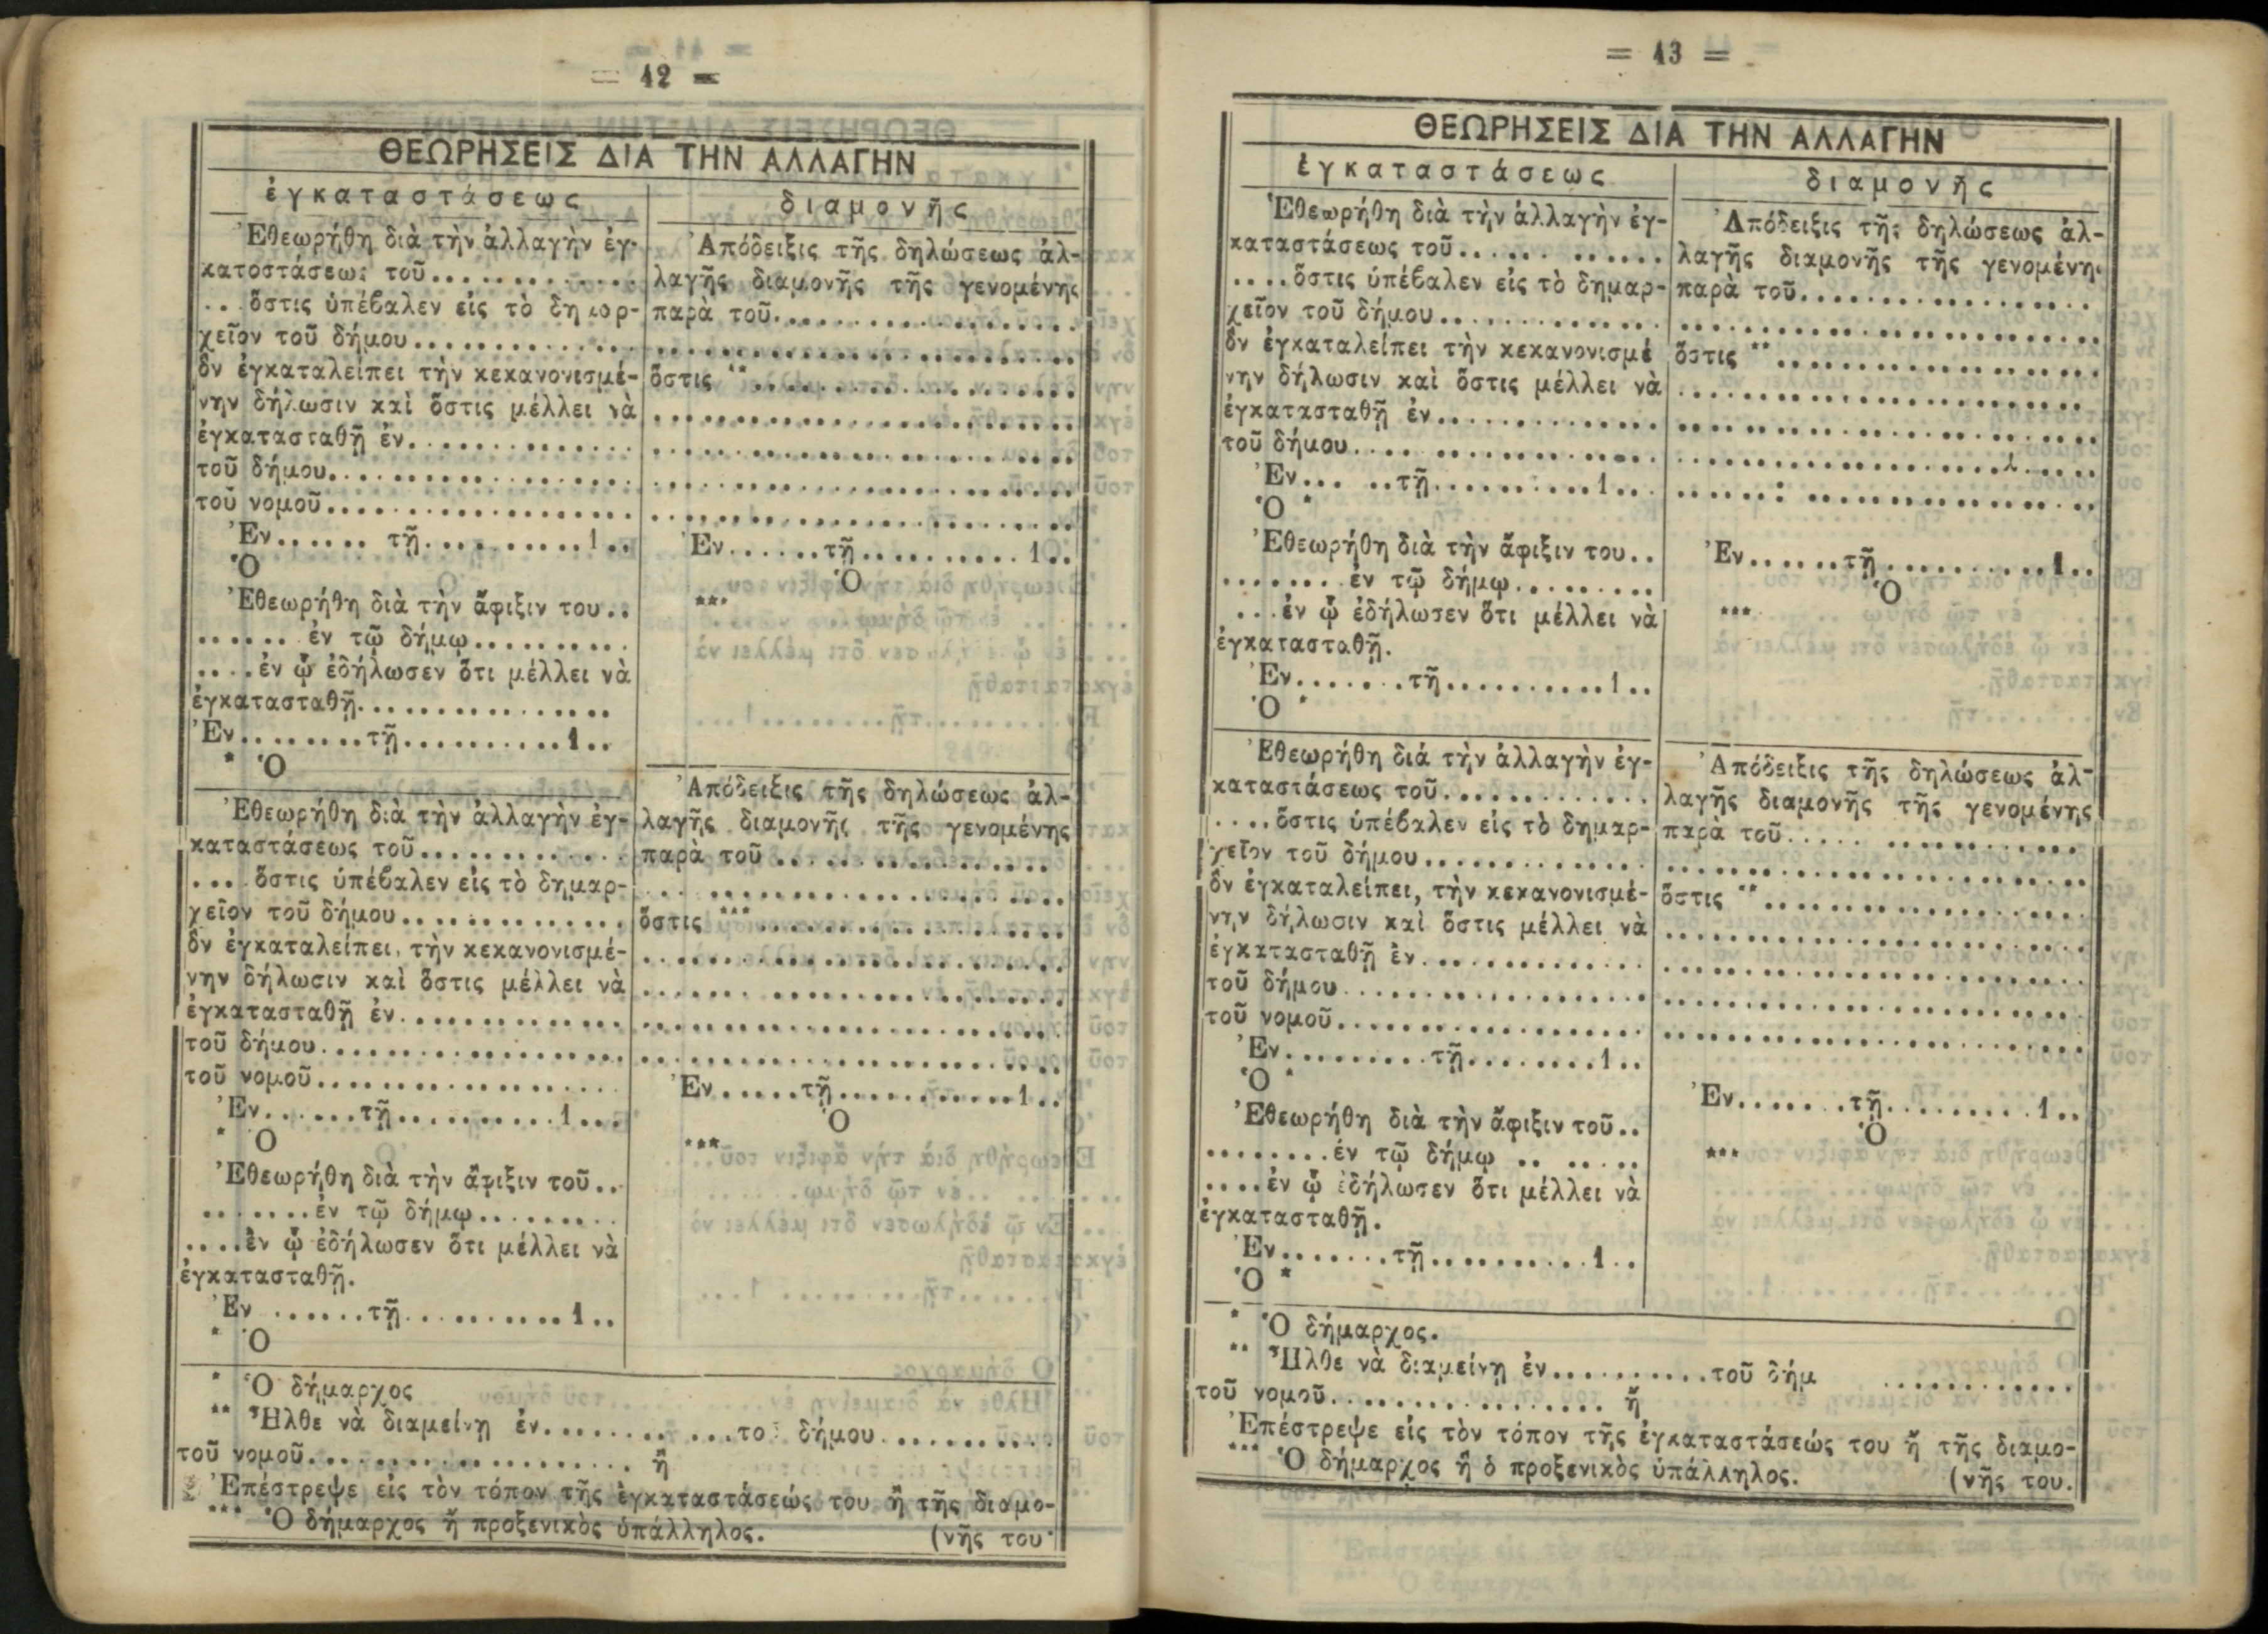 = 42 =
ΘΕΩΡΗΣΕΙΣ ΔΙΑ ΤΗΝ ΑΛΛΑΓΗΝ
ἐγκαταστάσεως
Ἐθεωρήθη διὰ τὴν ἀλλαγὴν ἐγ-
κατοστάσεως τοῦ.............
...ὅστις ὑπέβαλεν εἰς τὸ δημαρ-
χεῖον τοῦ δήμου..............
ὃν ἐγκαταλείπει τὴν κεκανονισμέ-
νην δήλωσιν καὶ ὅστις μέλλει νὰ
ἐγκατασταθῇ ἐν..............
τοῦ δήμου...................
τοῦ νομοῦ...................
Ἐν...... τῇ..........1..
Ὁ
Ἐθεωρήθη διὰ τὴν ἄφιξιν του..
...... ἐν τῷ δήμῳ..........
....ἐν ᾧ ἐδήλωσεν ὅτι μέλλει νὰ
ἐγκατασταθῇ................
Ἐν........τῇ..........1..
* Ὁ
Ἐθεωρήθη διὰ τὴν ἀλλαγὴν ἐγ-
καταστάσεως τοῦ.............
... ὅστις ὑπέβαλεν εἰς τὸ δημαρ-
χεῖον τοῦ δήμου..............
ὃν ἐγκαταλείπει, τὴν κεκανονισμέ-
νην δήλωσιν καὶ ὅστις μέλλει νὰ
ἐγκατασταθῇ ἐν..............
τοῦ δήμου...................
τοῦ νομοῦ...................
Ἐν......τῇ..........1...
* Ὁ
Ἐθεωρήθη διὰ τὴν ἄφιξιν τοῦ..
.......ἐν τῷ δήμῳ.........
....ἐν ᾧ ἐδήλωσεν ὅτι μέλλει νὰ
ἐγκατασταθῇ.
Ἐν ......τῇ..........1..
* Ὁ
διαμονῆς
Ἀπόδειξις τῆς δηλώσεως ἀλ-
λαγῆς διαμονῆς τῆς γενομένης
παρὰ τοῦ...................
...........................
ὅστις **....................
...........................
...........................
...........................
...........................
Ἐν......τῇ..........1..
Ὁ
***
Ἀπόδειξις τῆς δηλώσεως ἀλ-
λαγῆς διαμονῆς τῆς γενομένης
παρὰ τοῦ ..................
...........................
ὅστις ***...................
...........................
...........................
...........................
...........................
Ἐν.....τῇ...........1..
Ὁ
***
* Ὁ δήμαρχος
** Ἦλθε νὰ διαμείνῃ ἐν............το δήμου...........
τοῦ νομοῦ..................... ἢ
Ἐπέστρεψε εἰς τὸν τόπον τῆς ἐγκαταστάσεώς του ἢ τῆς διαμο-
*** Ὁ δήμαρχος ἢ προξενικὸς ὑπάλληλος. (νῆς του
= 43 =
ΘΕΩΡΗΣΕΙΣ ΔΙΑ ΤΗΝ ΑΛΛΑΓΗΝ
ἐγκαταστάσεως
Ἐθεωρήθη διὰ τὴν ἀλλαγὴν ἐγ-
καταστάσεως τοῦ...... ......
....ὅστις ὑπέβαλεν εἰς τὸ δημαρ-
χεῖον τοῦ δήμου..............
ὃν ἐγκαταλείπει τὴν κεκανονισμέ
νην δήλωσιν καὶ ὅστις μέλλει νὰ
ἐγκατασταθῇ ἐν..............
τοῦ δήμου.... ..............
Ἐν... ..τῇ..........1...
Ὁ *
Ἐθεωρήθη διὰ τὴν ἄφιξιν του..
........ἐν τῷ δήμῳ.........
...ἐν ᾧ ἐδήλωσεν ὅτι μέλλει νὰ
ἐγκατασταθῇ.
Ἐν.......τῇ..........1..
Ὁ *
Ἐθεωρήθη διά τὴν ἀλλαγὴν ἐγ-
καταστάσεως τοῦ.............
....ὅστις ὑπέβαλεν εἰς τὸ δημαρ-
χεῖον τοῦ δήμου..............
ὃν ἐγκαταλείπει, τὴν κεκανονισμέ-
νην δήλωσιν καὶ ὅστις μέλλει νὰ
ἐγκατασταθῇ ἐν..............
τοῦ δήμου...................
τοῦ νομοῦ...................
Ἐν.........τῇ........1..
Ὁ *
Ἐθεωρήθη διὰ τὴν ἄφιξιν τοῦ..
........ἐν τῷ δήμῳ .. .....
....ἐν ᾧ ἐδήλωσεν ὅτι μέλλει νὰ
ἐγκατασταθῇ.
Ἐν.......τῇ..........1..
Ὁ *
διαμονῆς
Ἀπόδειξις τῆς δηλώσεως ἀλ-
λαγῆς διαμονῆς τῆς γενομένης
παρὰ τοῦ...................
...........................
ὅστις **....................
...........................
...........................
...........................
...........................
Ἐν......τῇ...........1..
Ὁ
***
Ἀπόδειξις τῆς δηλώσεως ἀλ-
λαγῆς διαμονῆς τῆς γενομένης
παρὰ τοῦ..... ............
...........................
ὅστις **....................
...........................
...........................
...........................
...........................
Ἐν.......τῇ.........1..
Ὁ
***
* Ὁ δήμαρχος.
** Ἦλθε νὰ διαμείνῃ ἐν..........τοῦ δήμ ............
τοῦ νομοῦ.................. ἢ
Ἐπέστρεψε εἰς τὸν τόπον τῆς ἐγκαταστάσεώς του ἢ τῆς διαμο-
*** Ὁ δήμαρχος ἢ ὁ προξενικὸς ὑπάλληλος. (νῆς του.